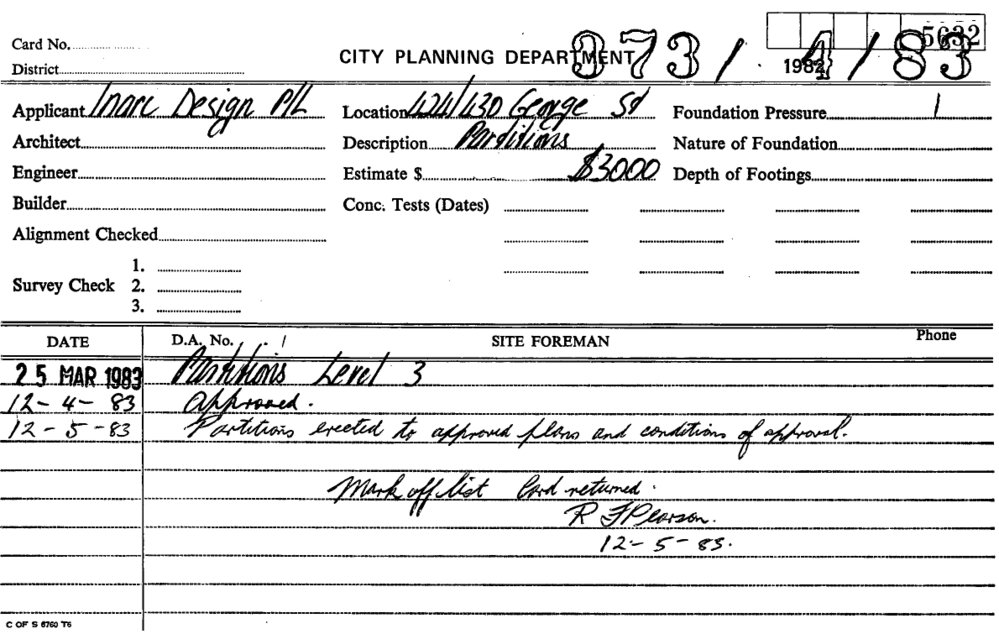 5632
Card No.
CITY PLANNING DEPARTMENT 373/4/83
District
1982
Applicant Inarc Design P/L Location 424/430 George St Foundation Pressure
Architect Description Partitions Nature of Foundation
Engineer Estimate $ $3000 Depth of Footings
Builder Conc. Tests (Dates)
Alignment Checked
1.
Survey Check 2.
3.
DATE D.A. No. SITE FOREMAN Phone
25 MAR 1983 Partitions Level 3
12-4-83 Approved.
12-5-83 Partitions erected to approved plans and conditions of approval.
Mark off list Card returned.
R F Pearson.
12-5-83.
C OF S 6760 T6